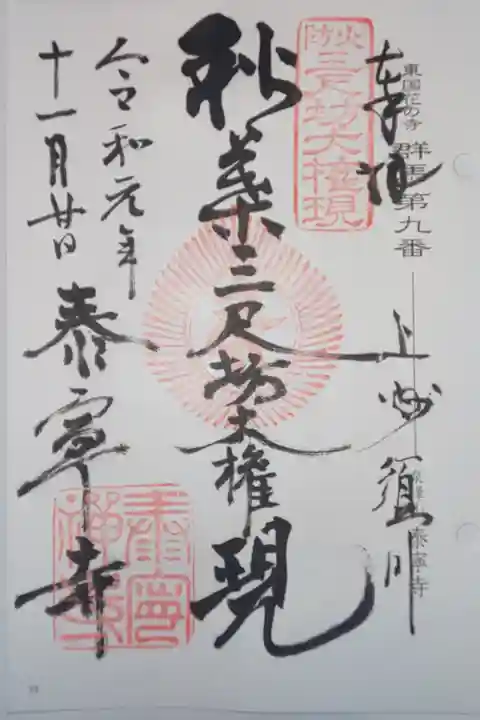 東国花の寺
群馬第九番
泰寧寺
奉拝
上州須川
火防
三尺坊大権現
秋葉三尺坊大権現
令和元年
十一月廿日
泰寧寺